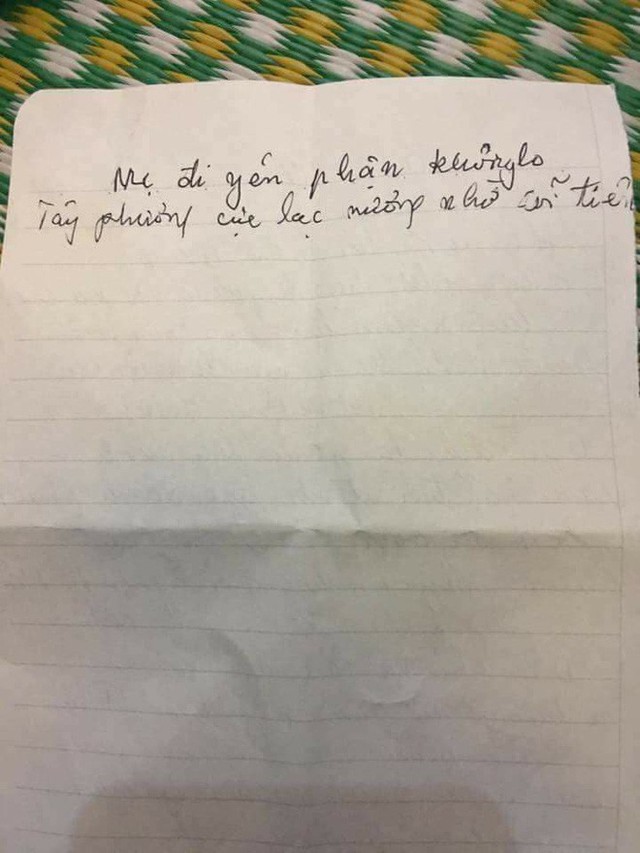 Mẹ đi yên phận không lo
Tây phương cực lạc nương nhờ cõi tiên